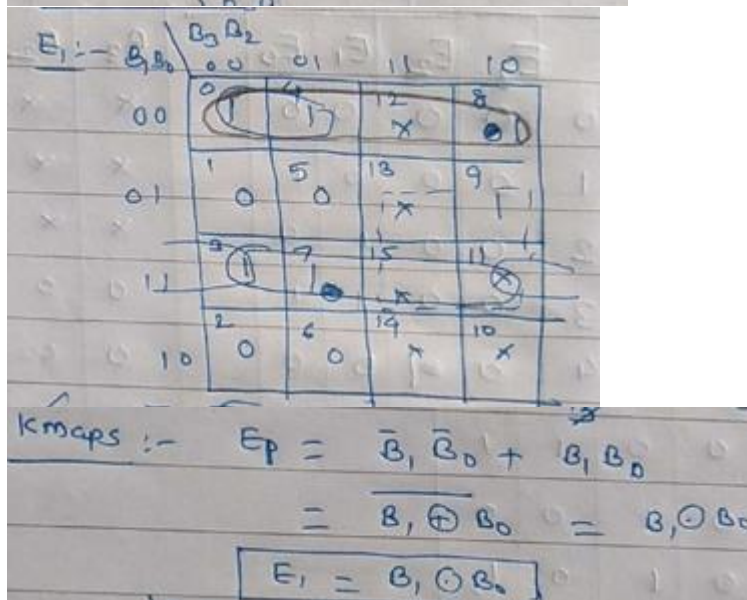 E₁ :- B₁B₀ \ B₃B₂
00 01 11 10
00 0 1 4 1 12 x 8 1
01 1 0 5 0 13 x 9 1
11 3 1 7 1 15 x 11 x
10 2 0 6 0 14 x 10 x
Kmaps :- Ep = B̅₁ B̅₀ + B₁ B₀
= \overline{B₁ ⊕ B₀} = B₁ ⊙ B₀
E₁ = B₁ ⊙ B₀